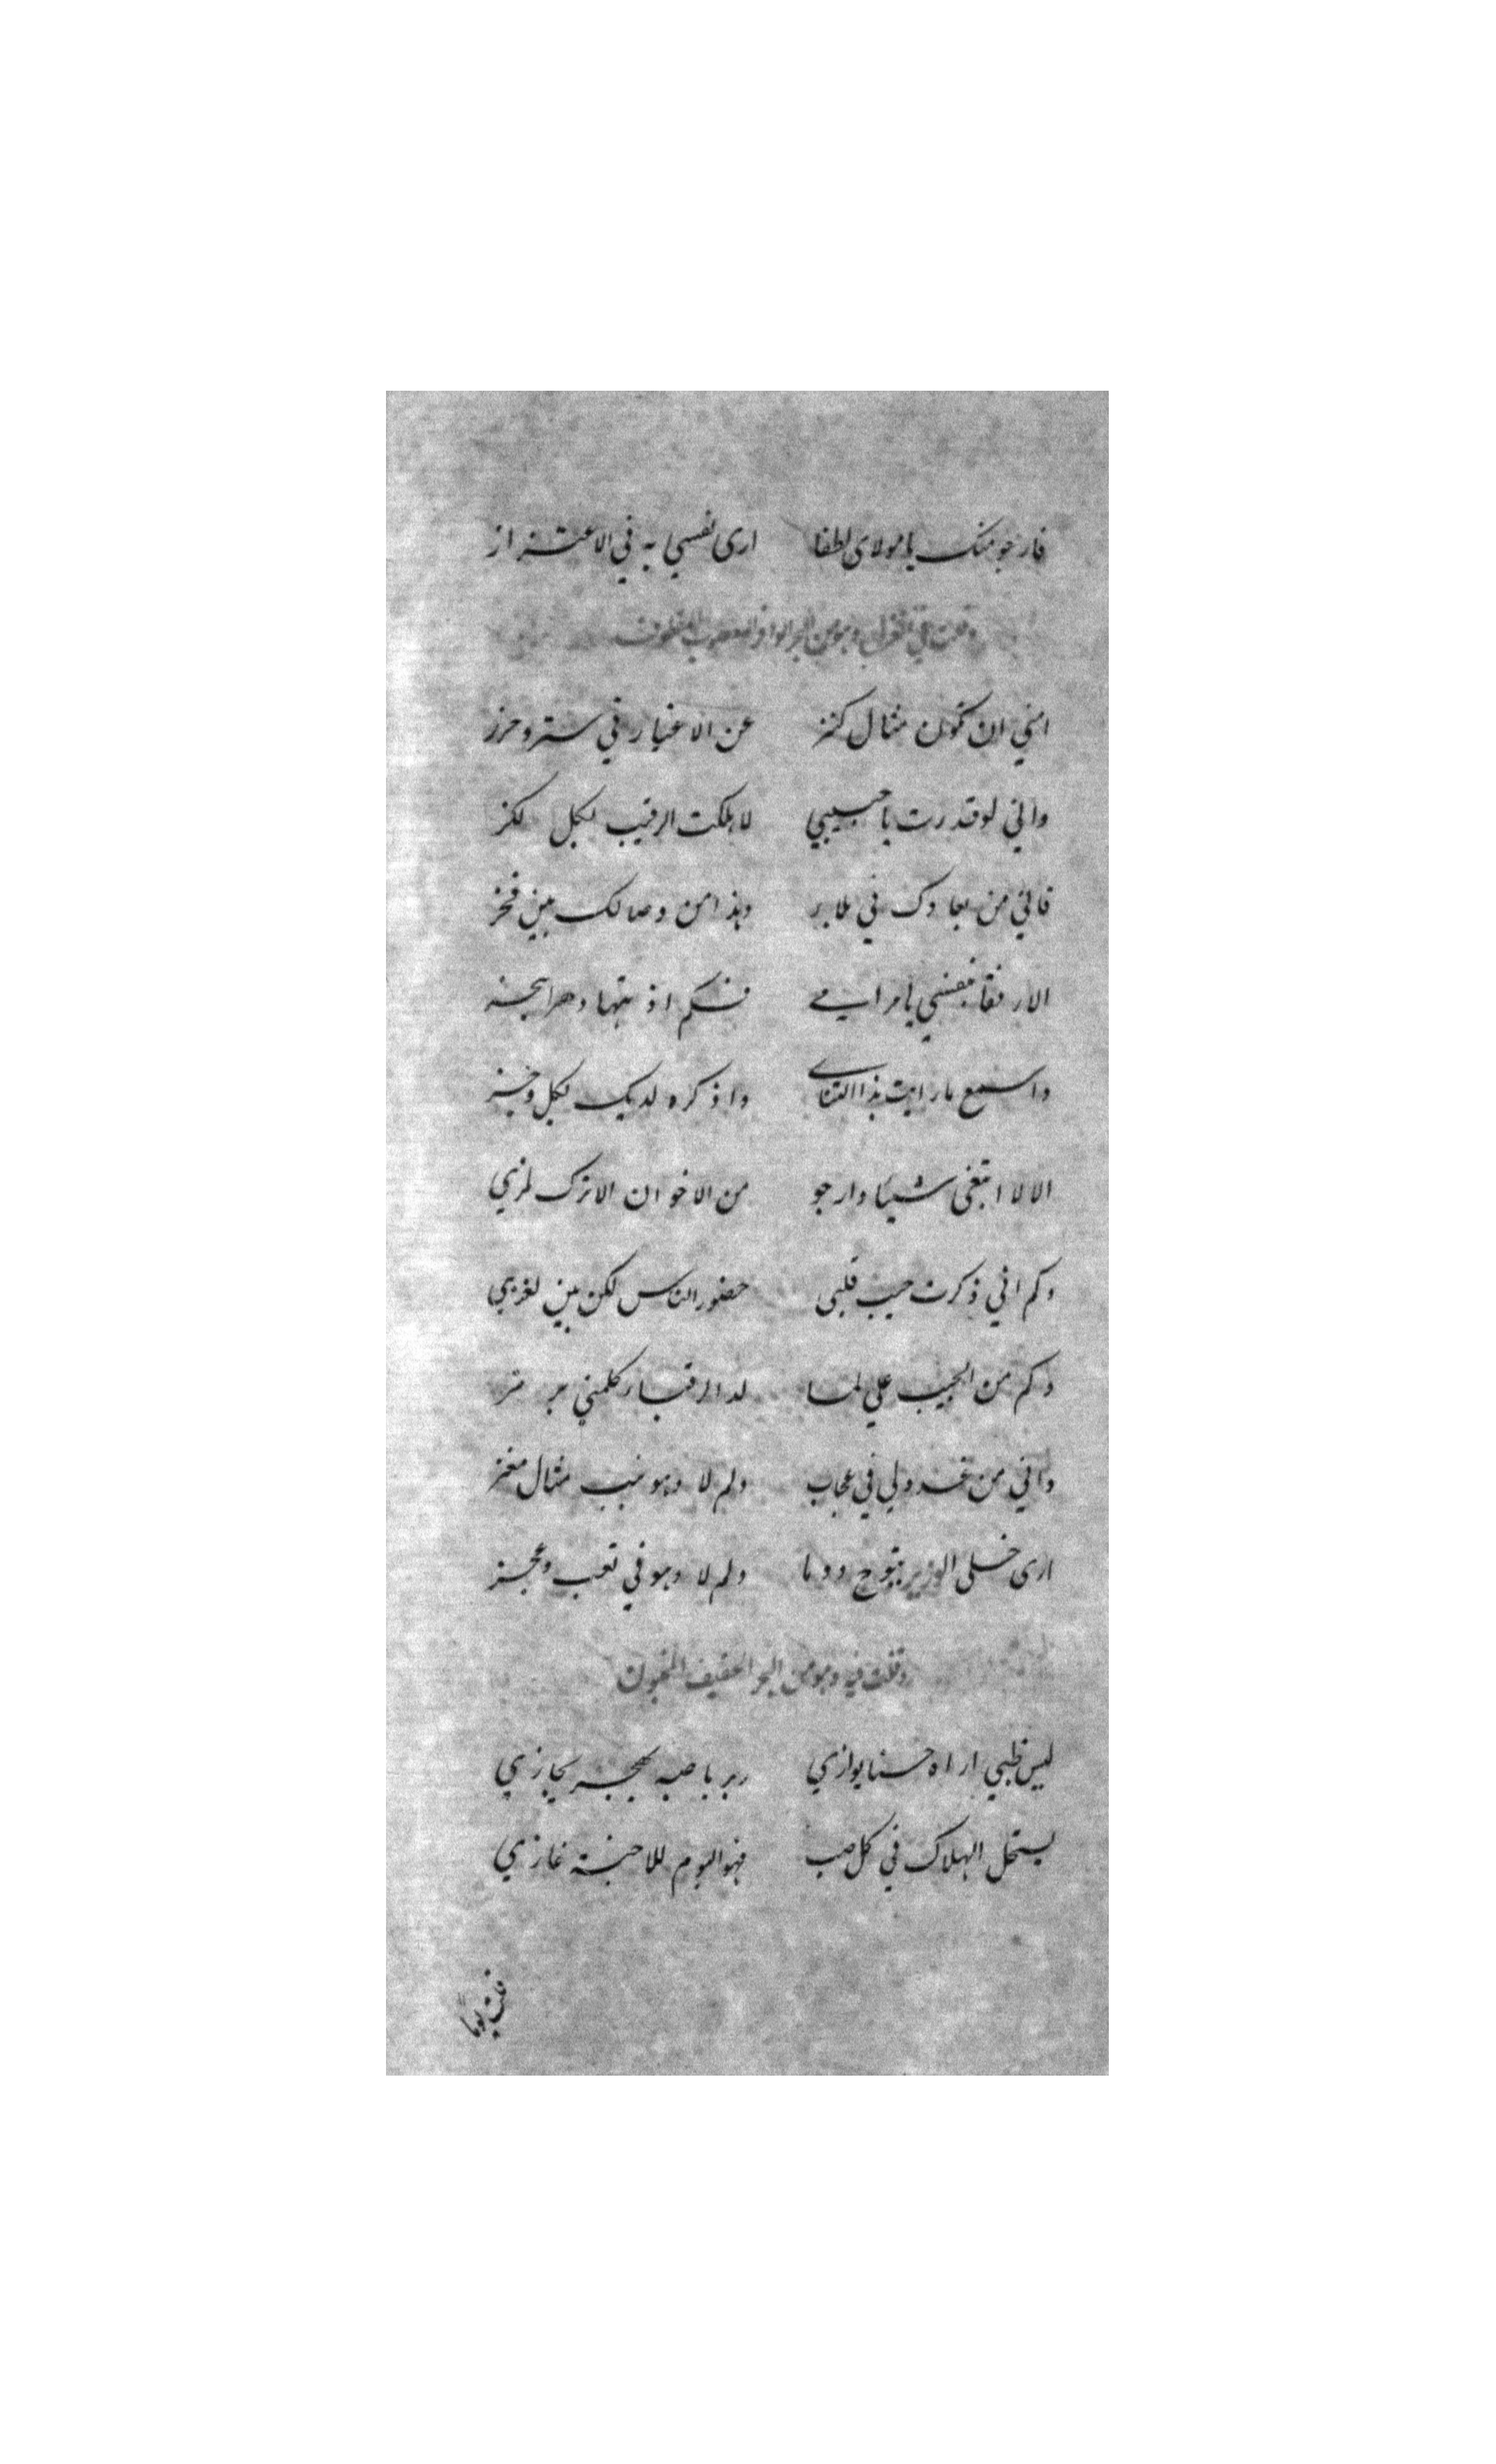 فارجو منك يا مولاى لطفا ارى نفسي به في الاعتزاز
وقلت في الغزل وهو من البحر الوافر المعصوب المقطوف
امني ان تكون مثال كنز عن الاغيار في ستر وحرز
واني لو قدرت يا حبيبي لاهلكت الرقيب بكل لكز
فاني من بعادك في بلا بر وهذا من وصالك بين فخز
الا رفقا بنفسي يا مرامي فكم اذبتها دهرا بحجز
واسمع ما رايت بذا التناى واذكره لديك بكل وجز
الا لا ابتغى شيئا وارجو من الاخوان الا ترك لمزي
وكم اني ذكرت حبيب قلبى حضور الناس لكن بين لغزي
وكم من الحبيب علي لما لدا الرقبا كلمني برمز
واني من عذولي في عجاب ولم لا وهو نيب مثال معز
ارى خلى الوزير يتوج دوما ولم لا وهو في تعب وعجز
وقلت فيه وهو من البحر الخفيف المخبون
ليس ظبي اراه حسنا يوازي ربربا صبه بهجر يجازي
يستحل الهلاك في كل صب فهو اليوم للاحبة غازي
قلت يوما